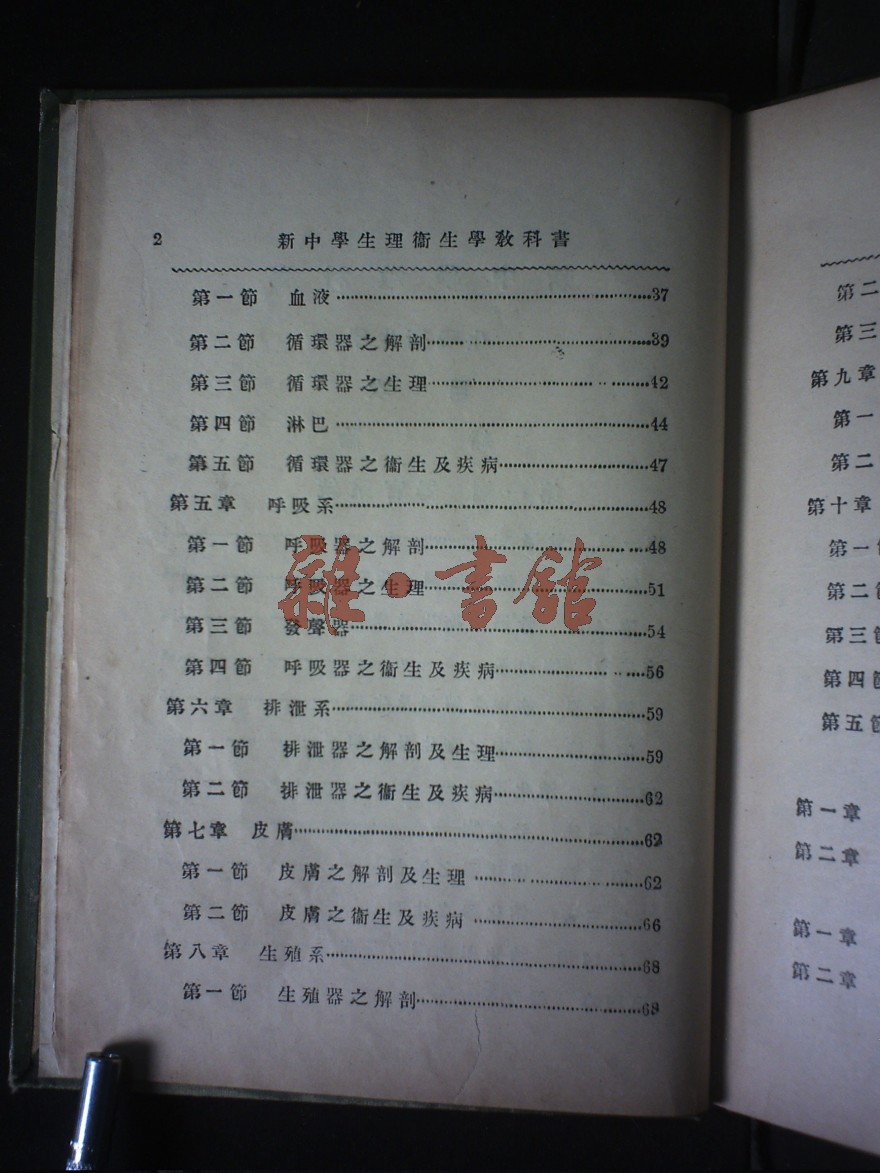 2 新中學生理衞生學敎科書
第一節 血液……37
第二節 循環器之解剖……39
第三節 循環器之生理……42
第四節 淋巴……44
第五節 循環器之衞生及疾病……47
第五章 呼吸系……48
第一節 呼吸器之解剖……48
第二節 呼吸器之生理……51
第三節 發聲器……54
第四節 呼吸器之衞生及疾病……56
第六章 排泄系……59
第一節 排泄器之解剖及生理……59
第二節 排泄器之衞生及疾病……62
第七章 皮膚……62
第一節 皮膚之解剖及生理……62
第二節 皮膚之衞生及疾病……66
第八章 生殖系……68
第一節 生殖器之解剖……68
雜·書館
第二
第三
第九章
第一
第二
第十章
第一節
第二節
第三節
第四節
第五節
第一章
第二章
第一章
第二章